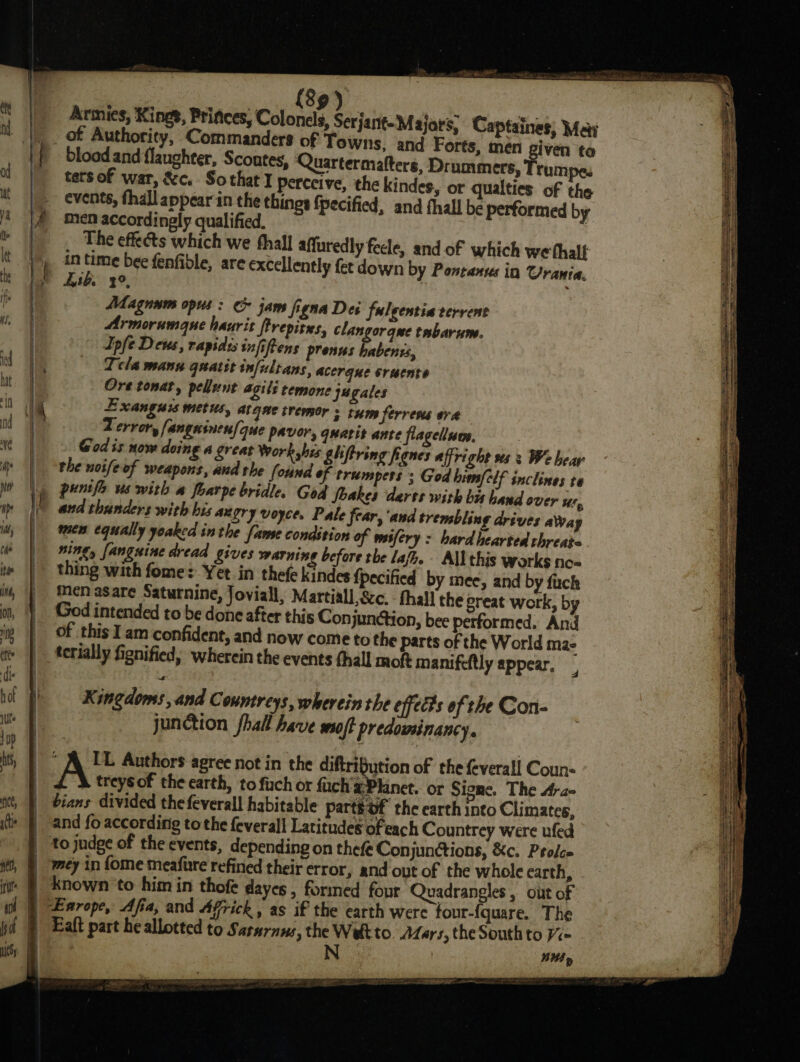 (89)
Armies, Kings, Princes, Colonels, Serjant-Majors, Captaines, Men
of Authority, Commanders of Towns, and Forts, men given to
blood and slaughter, Scoutes, Quartermasters, Drummers, Trumpe-
ters of war, &c. So that I perceive, the kindes, or qualties of the
events, shall appear in the things specified, and shall be performed by
men accordingly qualified.
The effects which we shall assuredly feele, and of which we shall
in time bee sensible, are excellently set down by Pontanus in Urania.
Lib. 3º.
Magnum opus : & jam signa Dei fulgentia terrent
Armorumque haurit strepitus, clangorque tubarum.
Ipse Deus, rapidis insistens pronus habenis,
Tela manu quatit insultans, acerque cruento
Ore tonat, pellunt agili temone jugales
Exanguis metus, atque tremor ; tum ferrens ora
Terror, sanguineusque pavor, quatit ante flagellum.
God is now doing a great Work, his glistring signes affright us : We hear
the noise of weapons, and the sound of trumpets ; God himself inclines to
punish us with a sharpe bridle. God shakes darts with his hand over us,
and thunders with his angry voyce. Pale fear, and trembling drives away
men equally yoaked in the same condition of misery : hard hearted threat-
ning, sanguine dread gives warning before the lash. All this works no-
thing with some : Yet in these kindes specified by mee, and by such
men as are Saturnine, Joviall, Martiall, &c. shall the great work, by
God intended to be done after this Conjunction, bee performed. And
of this I am confident, and now come to the parts of the World ma-
terially signified, wherein the events shall most manifestly appear.
Kingdoms, and Countreys, wherein the effects of the Con-
junction shall have most predominancy.
All Authors agree not in the distribution of the severall Coun-
treys of the earth, to such or such a Planet. or Signe. The Ara-
bians divided the severall habitable parts of the earth into Climates,
and so according to the severall Latitudes of each Countrey were used
to judge of the events, depending on these Conjunctions, &c. Ptolo-
mey in some measure refined their error, and out of the whole earth,
known to him in those dayes, formed four Quadrangles, out of
Europe, Asia, and Affrick, as if the earth were four-square. The
East part he allotted to Saturnus, the West to Mars, the South to Ve-
N
nus,